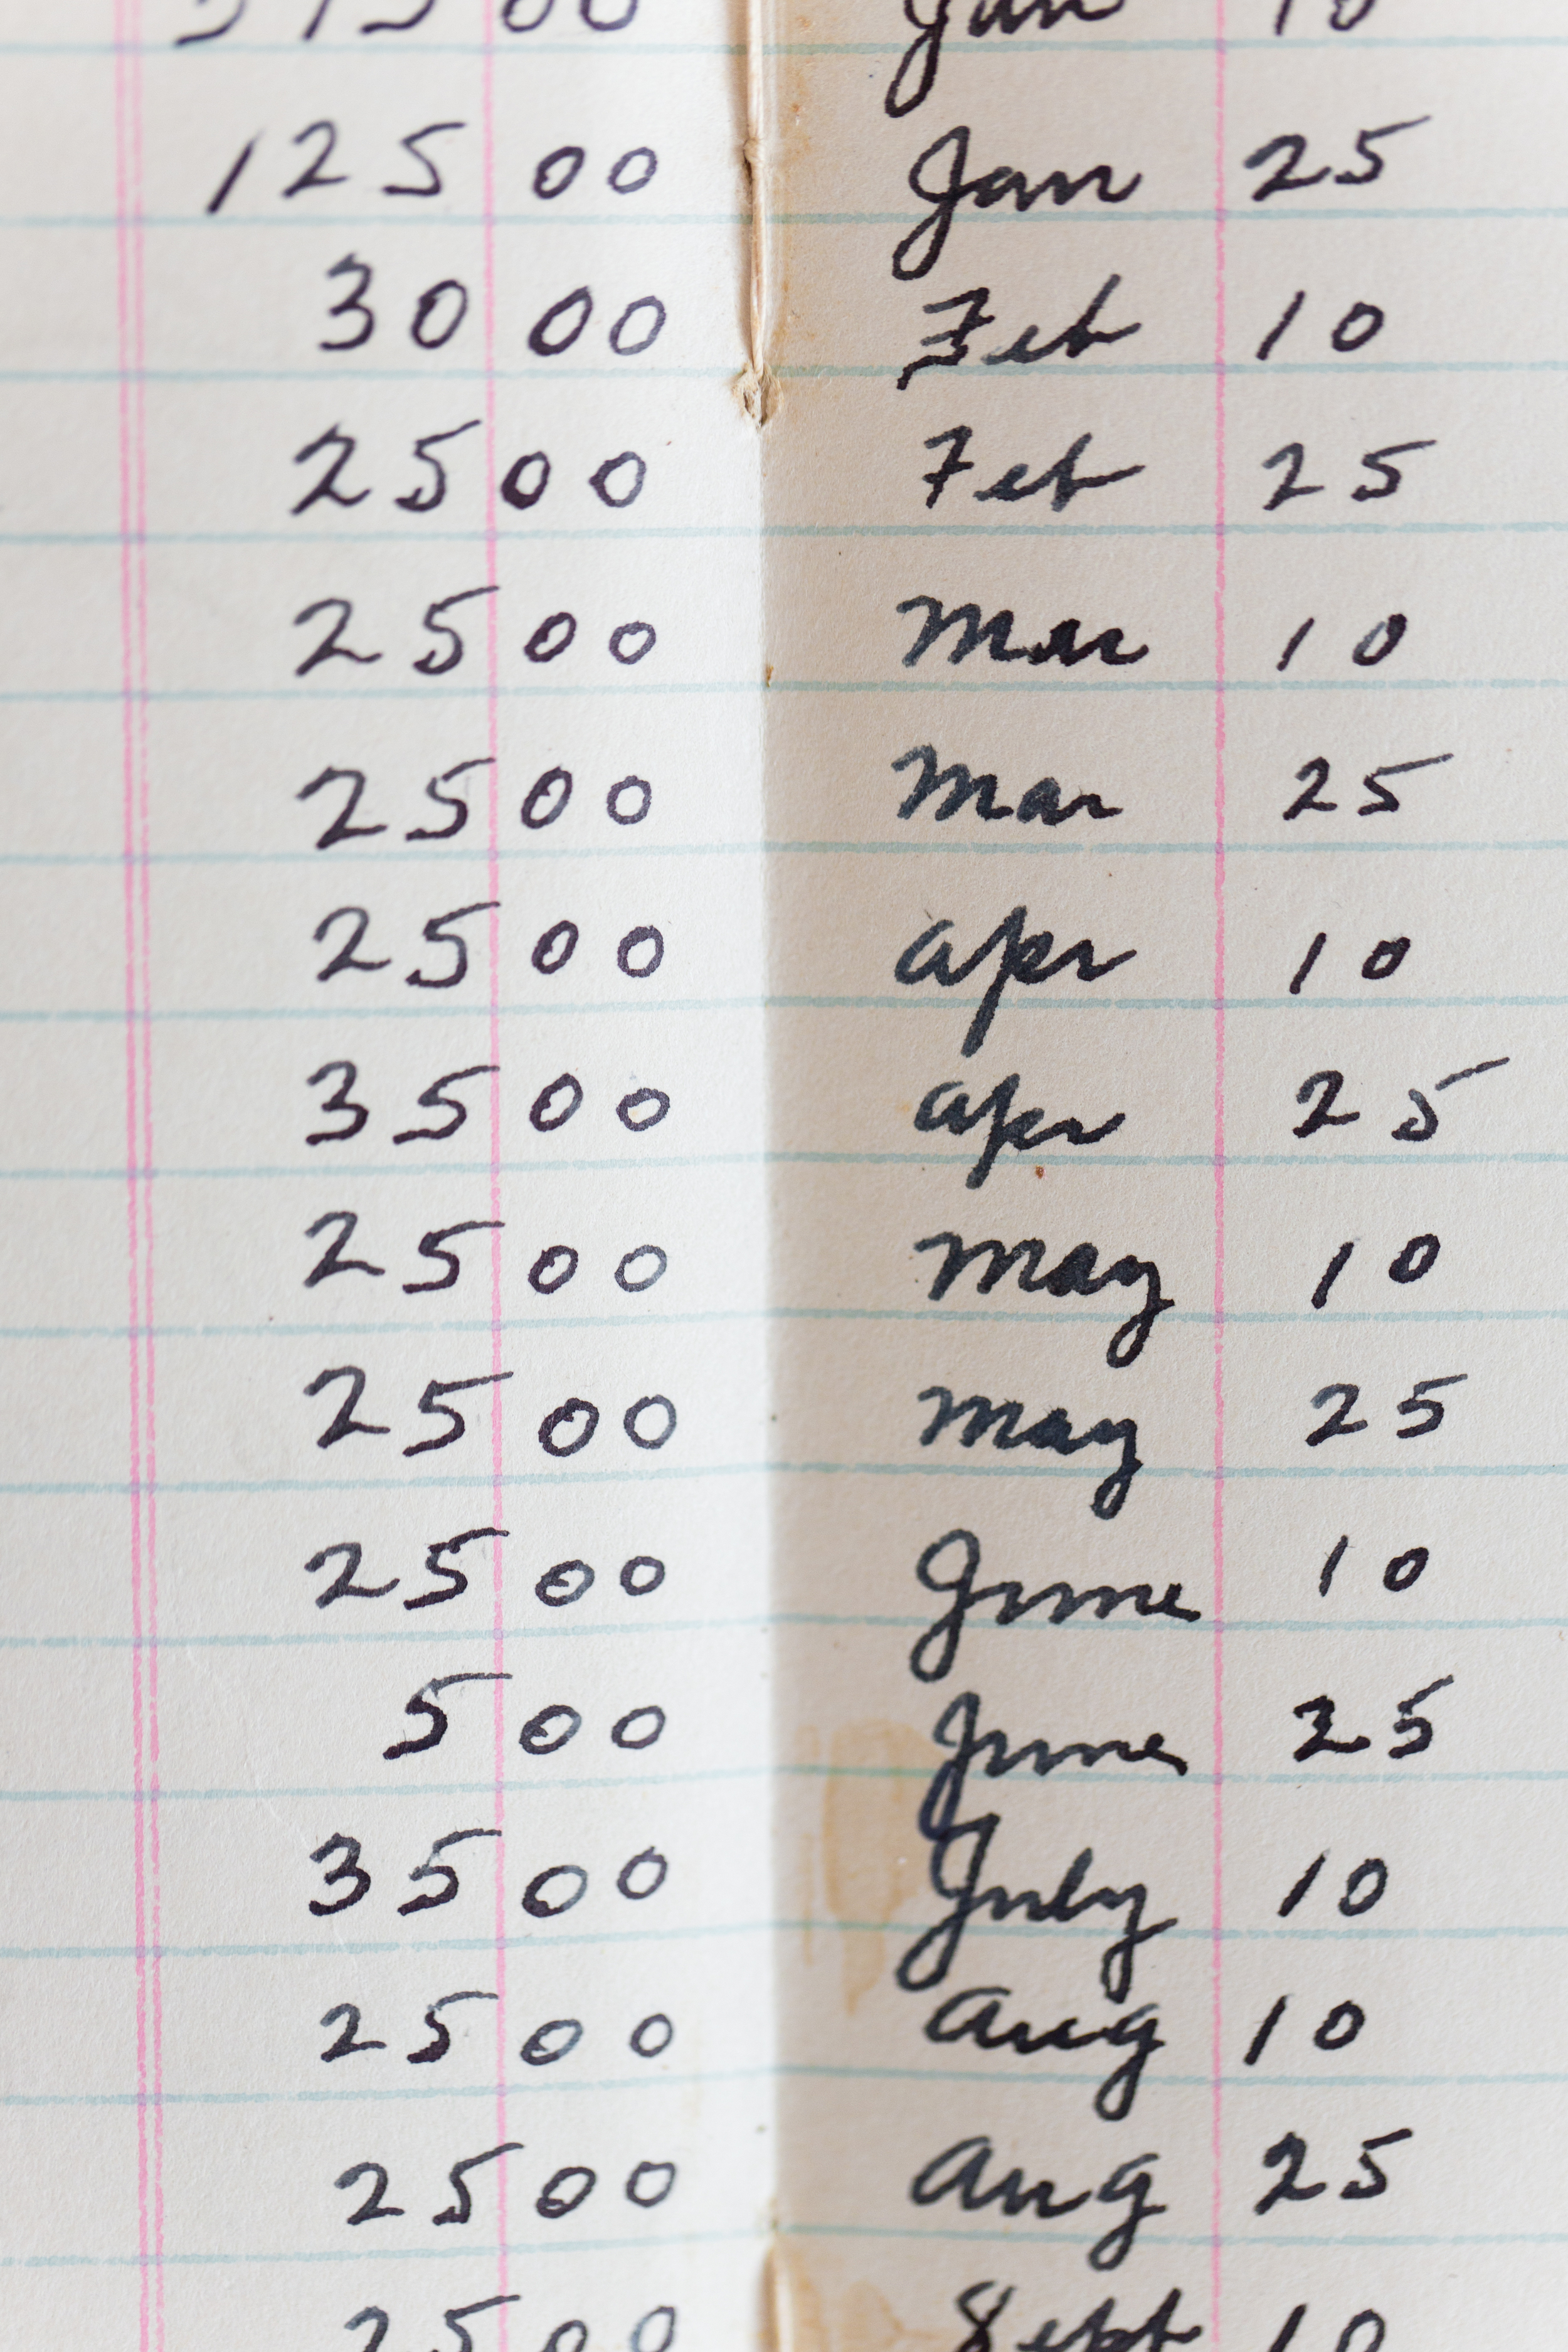 125 00 Jan 25
30 00 Feb 10
25 00 Feb 25
25 00 Mar 10
25 00 Mar 25
25 00 Apr 10
35 00 Apr 25
25 00 May 10
25 00 May 25
25 00 June 10
5 00 June 25
35 00 July 10
25 00 Aug 10
25 00 Aug 25
25 00 Sept 10